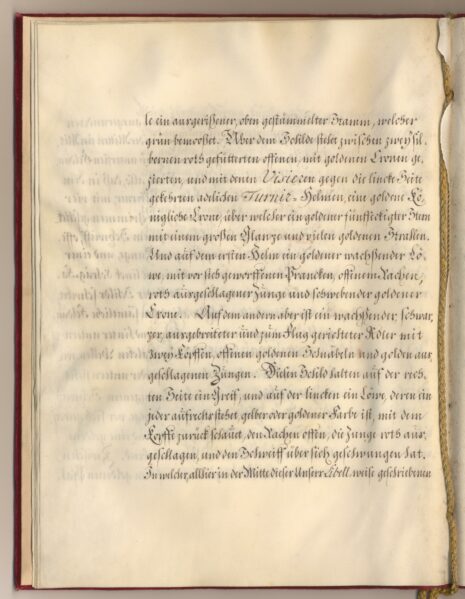 le ein ausgerißener, oben gestümmelter Stamm, welcher
grün bemooßet. Über dem Schilde stehet zwischen zweÿ sil-
bernen roth gefütterten offenen, mit goldenen Cronen ge-
zierten, und mit denen Visieren gegen die lincke Seite
gekehrten adelichen Turnir-Helmen, eine goldene Kö-
nigliche Crone, über welcher ein goldener fünffeckigter Stern
mit einem großen Glantze und vielen goldenen Strahlen.
Und auf dem ersten Helm ein goldener wachßender Lö-
we, mit vor sich geworffenen Prancken, offenem Rachen,
roth ausgeschlagener Zunge und schwebender goldener
Crone. Auf dem andern aber ist ein wachßender, schwar-
zer, ausgebreiteter und zum Flug gerichteter Adler mit
zweÿ Köpffen, offenen goldenen Schnäbeln und golden aus-
geschlagenen Zungen. Diesen Schild halten auf der rech-
ten Seite ein Greif, und auf der lincken ein Löwe, deren ein
jeder aufrecht stehet gelber oder goldener Farbe ist, mit dem
Kopffe zurück schauet, den Rachen offen, die Zunge roth aus-
geschlagen, und den Schweiff über sich geschwungen hat.
In welcher, allhier in der Mitte dieser Unser Libell-weise geschriebenen